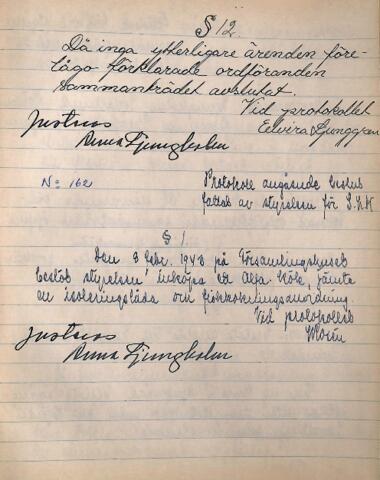 § 12.
Då inga ytterligare ärenden före-
lågo förklarade ordföranden
sammanträdet avslutat.
Vid protokollet
Elvira Ljunggren
Justeras
Anna Ljungholm
No 162
Protokoll angående beslut
fattat av styrelsen för S.K.K
§ 1.
Den 8 febr. 1943 på Församlingshuset
beslöt styrelsen inköpa ett Alfa Kök, jämte
en isoleringslåda och fiskkokningsanordning.
Vid protokollet
Justeras
Anna Ljungholm